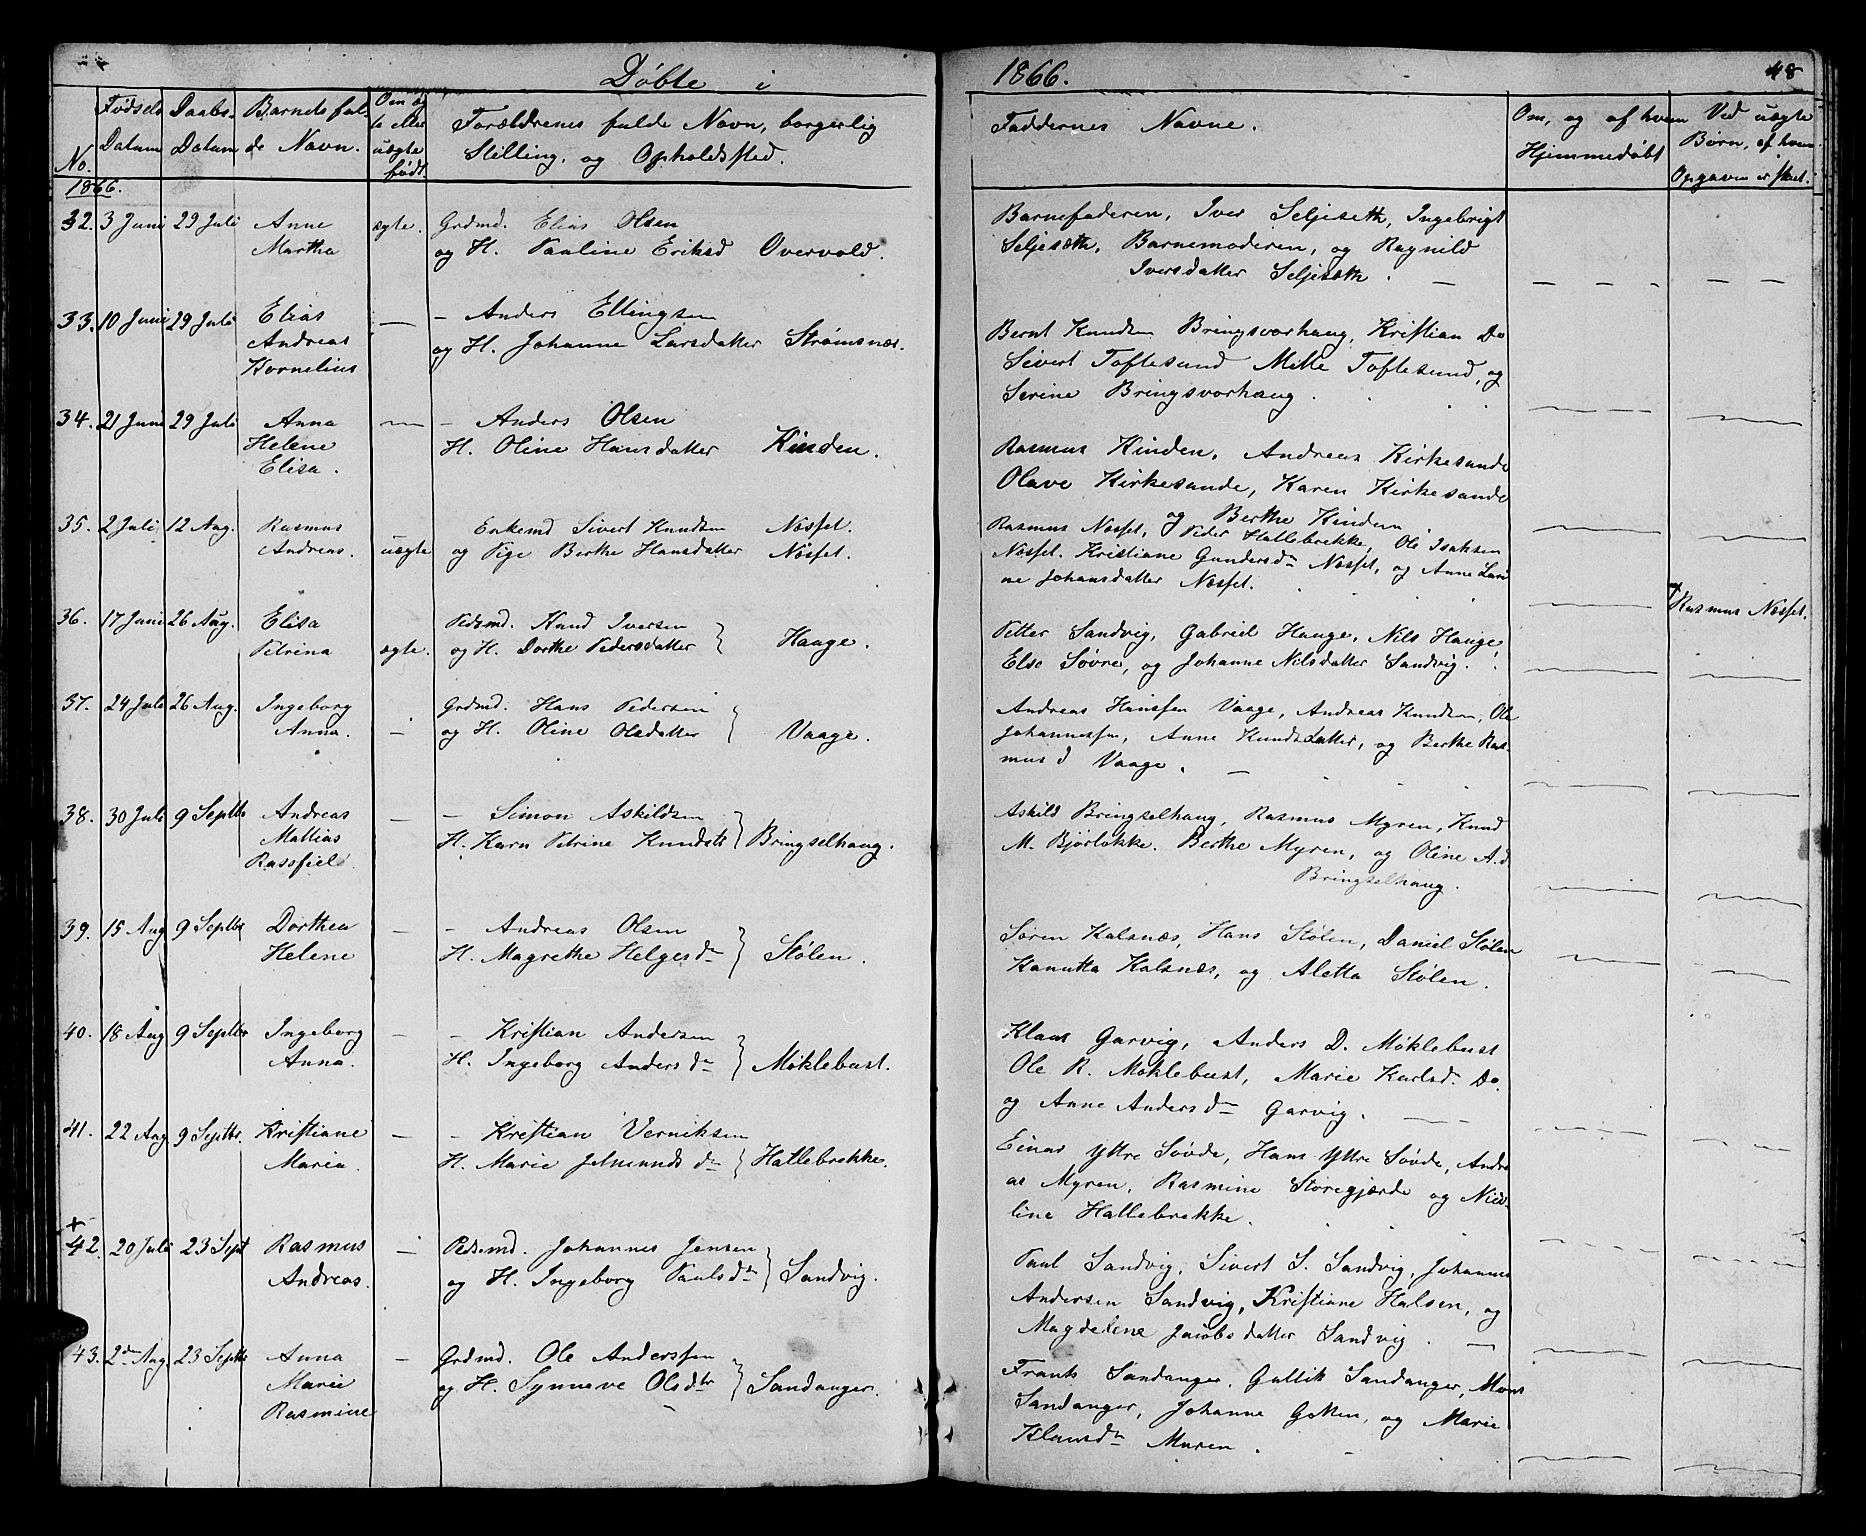 Døbte i
1866.
48
No.
Fødsels Datum
Daabs- Datum
Barnets fulde Navn.
Om ægte eller uægte født.
Forældrenes fulde Navn, borgerlig Stilling, og Opholdssted.
Faddernes Navne.
Om, og af hvem Hjemmedøbt
Ved uægte Børn, af hvem Opgaven er skeet.
1866.
32. 3 Juni 29 Juli Anne ægte. Grdmd. Elias Olsen
Martha og H. Pauline Eriksd Overvold.
Barnefaderen, Iver Seljeseth, Ingebrigt
Seljesæth, Barnemoderen, og Ragnild
Iversdatter Seljesæth.
33. 10 Juni 29 Juli Elias — - Anders Ellingsen
Andreas og H. Johanne Larsdatter Strømsnæs.
Kornelius
Bernt Knudsen Bringsvorhaug, Kristian Do
Sivert Toftesund Mette Toftesund, og
Serine Bringsvorhaug.
34. 21 Juni 29 Juli Anna — - Anders Olsen
Helene H. Oline Hansdatter Kinden.
Elisa.
Rasmus Kinden, Andreas Kirkesande
Olave Kirkesande, Karen Kirkesande
og Berthe Kinden.
35. 2 Juli 12 Aug. Rasmus Enkemd Sivert Knudsen Nosset.
Andreas. uægte og Pige Berthe Hansdatter Nosset.
Rasmus Nosset, Peder Hallebrekke, Ole Isaksen
Nosset. Kristiane Gundersdr Nosset, og Anne Lari
ne Johansdatter Nosset.
Rasmus Nosset.
36. 17 Juni 26 Aug. Elisa Pldsmd. Knud Iversen
Petrina ægte. og H. Dorthe Pedersdatter } Haage.
Petter Sandvig, Gabriel Hauge, Nils Hauge
Else Søvre, og Johanne Nilsdatter Sandvig.
37. 24 Juli 26 Aug. Ingeborg Grdmd. Hans Pedersen
Anna. — og H. Oline Olsdatter } Vaage.
Andreas Hanssen Vaage, Andreas Knudsen, Ole
Johannessen, Anne Knudsdatter, og Berthe Ras
mus d Vaage.
38. 30 Juli 9 Septbr Andreas — - Simon Askildsen
Mattias H. Karn Petrine Knudsdtr } Bringselhaug.
Rassfield
Askild Bringselhaug, Rasmus Myren, Knud
M. Bjørlokke. Berthe Myren, og Oline A.d
Bringselhaug.
39. 15 Aug 9 Septbr Dorthea — - Andreas Olsen
Helene H. Magrethe Helgesdr } Stølen.
Søren Kalsnæs, Hans Stølen, Daniel Stølen
Kanutta Kalsnæs, og Aletta Stølen.
40. 18 Aug 9 Septbr Ingeborg — - Kristian Andersen
Anna. H. Ingeborg Andersdr } Møklebust.
Klaus Garvig, Anders D. Møklebust
Ole R. Møklebust, Marie Karlsdr Do
og Anne Andersdr Garvig.
41. 22 Aug 9 Septbr. Kristiane — - Kristian Verniksen
Maria. H. Marie Jetmundsdr } Hallebrekke.
Einar Yttre Søvde, Hans Yttre Søvde, Andre
as Myren, Rasmine Støregjærde og Nico-
line Hallebrekke.
+
42. 20 Juli 23 Sept Rasmus — Pldsmd. Johannes Jensen
Andreas. og H. Ingeborg Paulsdtr } Sandvig.
Paul Sandvig, Sivert S. Sandvig, Johannes
Andersen Sandvig, Kristiane Halsen, og
Magdelene Jacobsdatter Sandvig.
43. 2den Aug 23 Septbr Anna — Grdmd. Ole Anderssen
Marie og H. Synneve Olsdtr } Sandanger.
Rasmine
Frants Sandanger, Gullik Sandanger, Mons
Sandanger, Johanne Gotten, og Marie
Klausdr Muren.